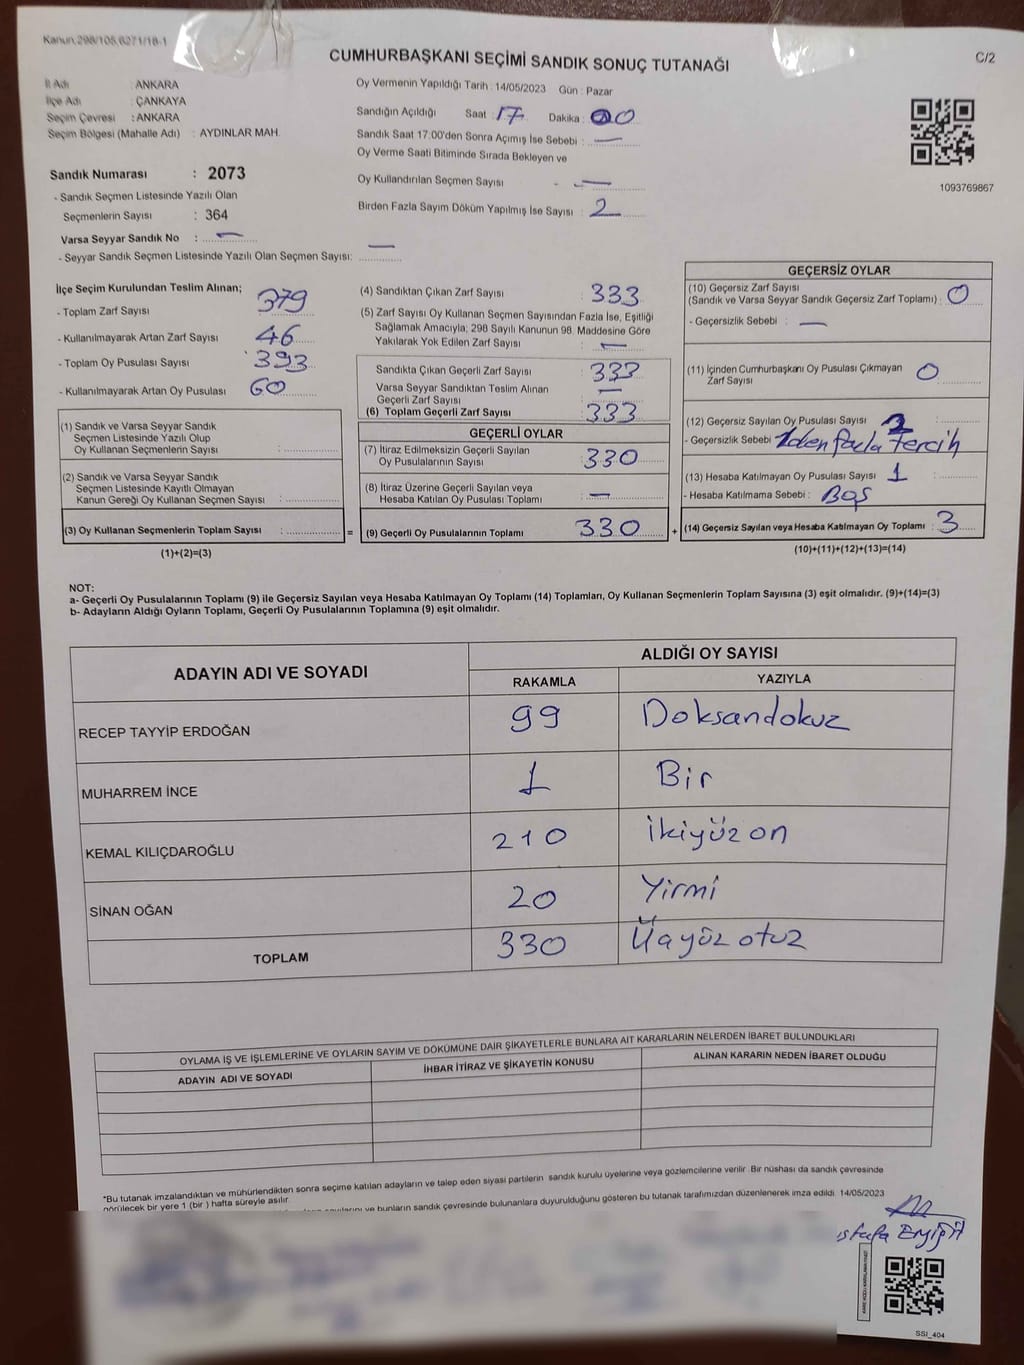 Kanun:298/105,6271/18-1
CUMHURBAŞKANI SEÇİMİ SANDIK SONUÇ TUTANAĞI
C/2
İl Adı : ANKARA
İlçe Adı : ÇANKAYA
Seçim Çevresi : ANKARA
Seçim Bölgesi (Mahalle Adı) : AYDINLAR MAH.
Oy Vermenin Yapıldığı Tarih : 14/05/2023 Gün : Pazar
Sandığın Açıldığı Saat : 17 Dakika : 00
Sandık Saat 17:00'den Sonra Açımış İse Sebebi : —
Oy Verme Saati Bitiminde Sırada Bekleyen ve
Oy Kullandırılan Seçmen Sayısı - —
Birden Fazla Sayım Döküm Yapılmış İse Sayısı : 2
1093769867
Sandık Numarası : 2073
- Sandık Seçmen Listesinde Yazılı Olan
Seçmenlerin Sayısı : 364
Varsa Seyyar Sandık No : —
- Seyyar Sandık Seçmen Listesinde Yazılı Olan Seçmen Sayısı: —
İlçe Seçim Kurulundan Teslim Alınan;
- Toplam Zarf Sayısı 379
- Kullanılmayarak Artan Zarf Sayısı 46
- Toplam Oy Pusulası Sayısı 393
- Kullanılmayarak Artan Oy Pusulası 60
(1) Sandık ve Varsa Seyyar Sandık
Seçmen Listesinde Yazılı Olup
Oy Kullanan Seçmenlerin Sayısı :
(2) Sandık ve Varsa Seyyar Sandık
Seçmen Listesinde Kayıtlı Olmayan
Kanun Gereği Oy Kullanan Seçmen Sayısı :
(3) Oy Kullanan Seçmenlerin Toplam Sayısı : =
(1)+(2)=(3)
(4) Sandıktan Çıkan Zarf Sayısı : 333
(5) Zarf Sayısı Oy Kullanan Seçmen Sayısından Fazla İse, Eşitliği
Sağlamak Amacıyla; 298 Sayılı Kanunun 98. Maddesine Göre
Yakılarak Yok Edilen Zarf Sayısı : —
Sandıkta Çıkan Geçerli Zarf Sayısı : 333
Varsa Seyyar Sandıktan Teslim Alınan
Geçerli Zarf Sayısı : —
(6) Toplam Geçerli Zarf Sayısı : 333
GEÇERLİ OYLAR
(7) İtiraz Edilmeksizin Geçerli Sayılan
Oy Pusulalarının Sayısı : 330
(8) İtiraz Üzerine Geçerli Sayılan veya
Hesaba Katılan Oy Pusulası Toplamı : —
(9) Geçerli Oy Pusulalarının Toplamı : 330 +
GEÇERSİZ OYLAR
(10) Geçersiz Zarf Sayısı
(Sandık ve Varsa Seyyar Sandık Geçersiz Zarf Toplamı) : 0
- Geçersizlik Sebebi : —
(11) İçinden Cumhurbaşkanı Oy Pusulası Çıkmayan
Zarf Sayısı : 0
(12) Geçersiz Sayılan Oy Pusulası Sayısı : 2
- Geçersizlik Sebebi 1den fazla tercih
(13) Hesaba Katılmayan Oy Pusulası Sayısı : 1
- Hesaba Katılmama Sebebi : Boş
(14) Geçersiz Sayılan veya Hesaba Katılmayan Oy Toplamı : 3
(10)+(11)+(12)+(13)=(14)
NOT:
a- Geçerli Oy Pusulalarının Toplamı (9) ile Geçersiz Sayılan veya Hesaba Katılmayan Oy Toplamı (14) Toplamları, Oy Kullanan Seçmenlerin Toplam Sayısına (3) eşit olmalıdır. (9)+(14)=(3)
b- Adayların Aldığı Oyların Toplamı, Geçerli Oy Pusulalarının Toplamına (9) eşit olmalıdır.
ADAYIN ADI VE SOYADI ALDIĞI OY SAYISI
RAKAMLA YAZIYLA
RECEP TAYYİP ERDOĞAN 99 Doksandokuz
MUHARREM İNCE 1 Bir
KEMAL KILIÇDAROĞLU 210 ikiyüz on
SİNAN OĞAN 20 Yirmi
TOPLAM 330 Üçyüz otuz
OYLAMA İŞ VE İŞLEMLERİNE VE OYLARIN SAYIM VE DÖKÜMÜNE DAİR ŞİKAYETLERLE BUNLARA AİT KARARLARIN NELERDEN İBARET BULUNDUKLARI
ADAYIN ADI VE SOYADI İHBAR İTİRAZ VE ŞİKAYETİN KONUSU ALINAN KARARIN NEDEN İBARET OLDUĞU
*Bu tutanak imzalandıktan ve mühürlendikten sonra seçime katılan adayların ve talep eden siyasi partilerin sandık kurulu üyelerine veya gözlemcilerine verilir. Bir nüshası da sandık çevresinde
görülecek bir yere 1 (bir ) hafta süreyle asılır.
ve bunların sandık çevresinde bulunanlara duyurulduğunu gösteren bu tutanak tarafımızdan düzenlenerek imza edildi. 14/05/2023
SSI_404